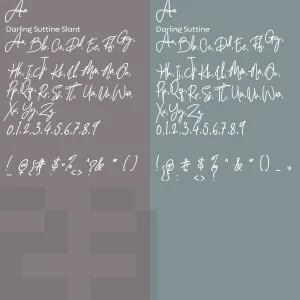 Aa
Darling Suttine Slant
Aa, Bb, Cc, Dd, Ee, Ff, Gg,
Hh, Ii, Jj, Kk, Ll, Mm, Nn, Oo,
Pp, Qq, Rr, Ss, Tt, Uu, Vv, Ww,
Xx, Yy, Zz
0,1,2,3,4,5,6,7,8,9
Aa
Darling Suttine
Aa, Bb, Cc, Dd, Ee, Ff, Gg,
Hh, Ii, Jj, Kk, Ll, Mm, Nn, Oo,
Pp, Qq, Rr, Ss, Tt, Uu, Vv, Ww,
Xx, Yy, Zz
0,1,2,3,4,5,6,7,8,9